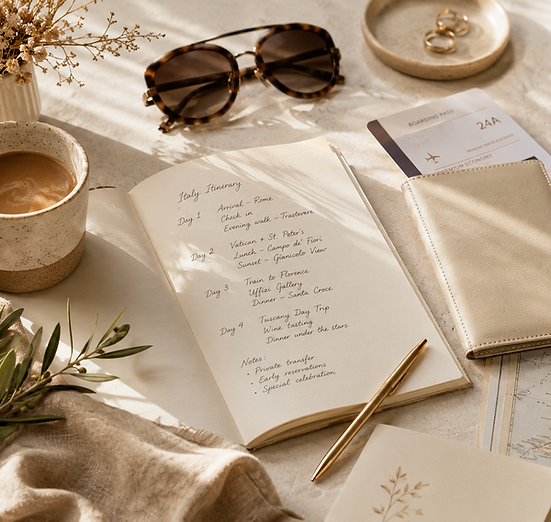 Italy Itinerary
Day 1 Arrival - Rome
Check in
Evening walk - Trastevere
Day 2 Vatican + St. Peter's
Lunch - Campo de' Fiori
Sunset - Gianicolo View
Day 3 Train to Florence
Uffizi Gallery
Dinner - Santa Croce
Day 4 Tuscany Day Trip
Wine tasting
Dinner under the stars
Notes:
• Private transfer
• Early reservations
• Special celebration
BOARDING PASS
24A
PREMIUM ECONOMY